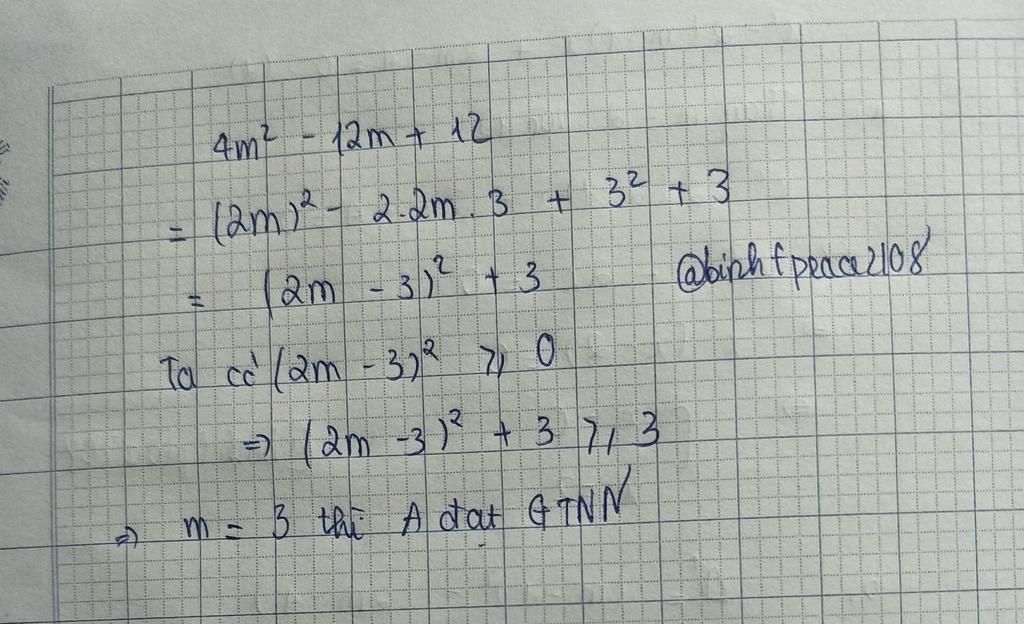 4m² - 12m + 12
= (2m)² - 2.2m.3 + 3² + 3
= (2m - 3)² + 3 @binhfpeace2108
Ta có (2m - 3)² ≥ 0
=> (2m - 3)² + 3 ≥ 3
=> m = 3 thì A đạt GTNN